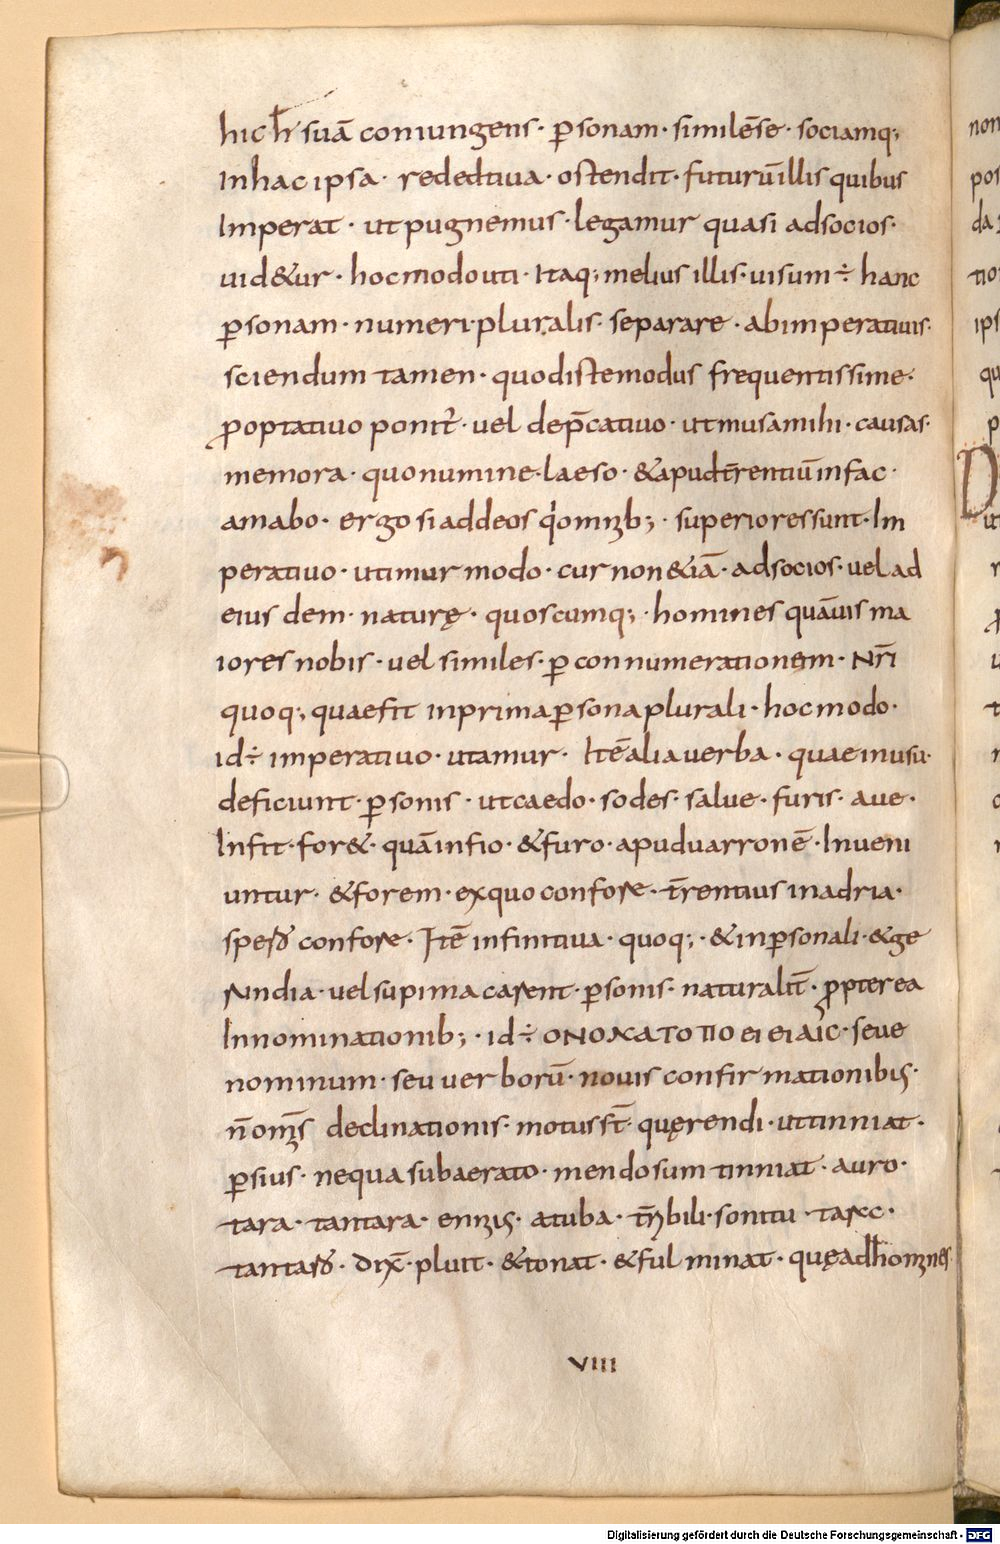 hic h̄ suā coniungens · p̱sonam · similēse · sociamq;
Inhac ipsa · rededtiua · ostendit · futurū illis quibus
Imperat · ut pugnemus · legamur quasi adsocios ·
uid&ur · hoc modo uti · Itaq; melius illis · uisum ÷ hanc
p̱sonam · numeri · pluralis · separare · abimperatiuis ·
sciendum tamen · quod iste modus frequentissime ·
ꝓoptatiuo ponit᷑ · uel dep̄catiuo · ut musamihi · causas ·
memora · quonumine · laeso · &apudt̄rentiū infac ·
amabo · ergo siaddeos qi omīb; · superioressunt · Im
peratiuo · utimur modo · cur non &iā · adsocios · uel ad
eius dem · naturę · quoscumq; · homines quāuis ma
iores nobis · uel similes · p̱ connumerationem · Nr̄i
quoq; quaefit inprimap̱sona plurali · hoc modo ·
id ÷ imperatiuo · utamur · Itē alia uerba · quae inusu ·
deficiunt · p̱sonis · ut caedo · sodes · salue · furis · aue ·
Infit · for& · quā infio · &furo · apuduarronē · Inueni
untur · &forem · exquo confore · t̄rentius inadria ·
spesꝰ confore · Itē infinitiua · quoq; · &inp̱sonali · &ge
rundia · uel supina carent · p̱sonis · naturalit̄ · ꝓpterea
Innominationib; · id ÷ ONOMATOΠOEIEIAIC · seue
nominum · seu uerborū · nouis confirmationibis ·
n̄ omīs declinationis · motus st̄ · quęrendi · ut tinniat ·
p̱sius · nequa subaerato · mendosum tinniat · auro ·
tara · tantara · ennis · atuba · t̄ribili · sonitu · taracc ·
tantarꝰ · dix̄ · pluit · &tonat · &fulminat · quęadh̄omīnes
VIII
Digitalisierung gefördert durch die Deutsche Forschungsgemeinschaft - DFG